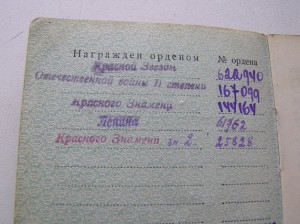 Награжден орденом № ордена
Красной Звезды 622940
Отечественной войны II степени 167099
Красного Знамени 144164
Ленина 41762
Красного Знамени зн. 2 25828